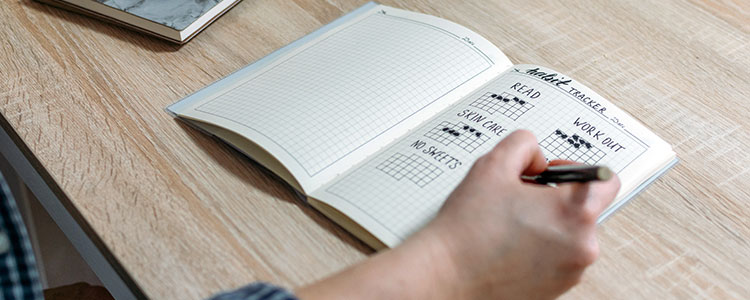 habit TRACKER
READ
SKIN CARE
WORK OUT
NO SWEETS